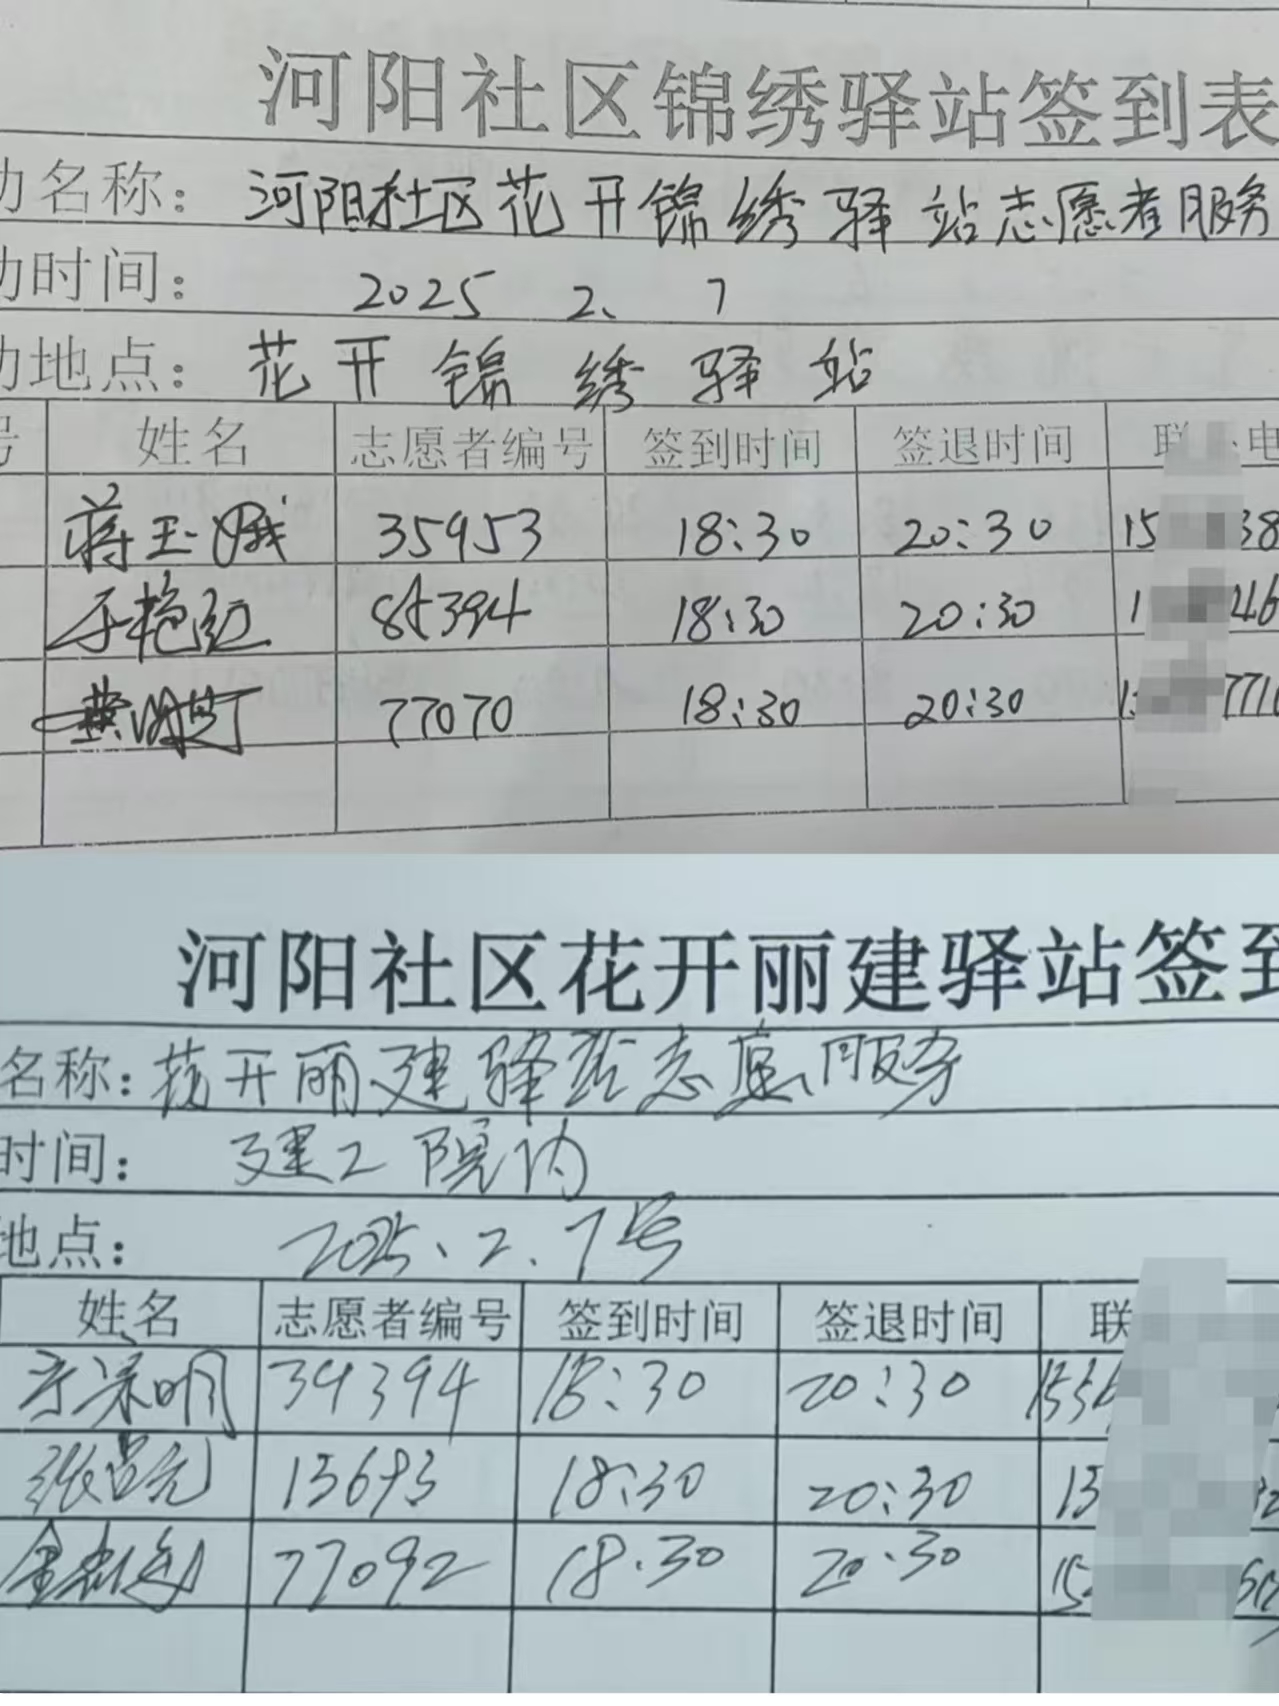 河阳社区锦绣驿站签到表
动名称：河阳社区花开锦绣驿站志愿者服务
动时间：2025 2、7
动地点：花开锦绣驿站
号 姓名 志愿者编号 签到时间 签退时间 联 电
蒋玉娥 35953 18:30 20:30 15 38
于艳红 84394 18:30 20:30 1 46
77070 18:30 20:30 1 771
河阳社区花开丽建驿站签到
名称：花开丽建驿站志愿服务
时间：建工院内
地点：2025、2、7号
姓名 志愿者编号 签到时间 签退时间 联
39394 18:30 20:30 155
张 元 13693 18:30 20:30 13
77092 18:30 20:30 15